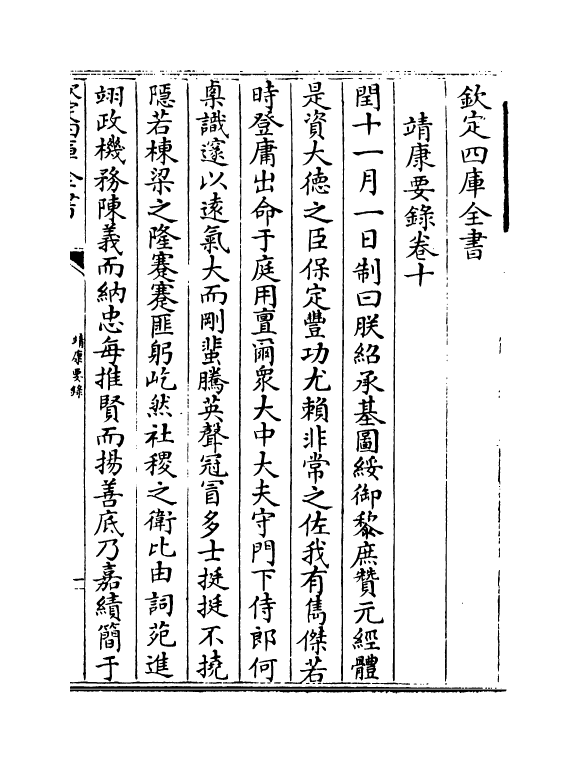 欽定四庫全書
靖康要錄卷十
閏十一月一日制曰朕紹承基圖綏御黎庶贊元經體
是資大德之臣保定豐功尤賴非常之佐我有雋傑若
時登庸出命于庭用亶爾衆大中大夫守門下侍郎何
㮚識邃以逺氣大而剛蜚騰英聲冠冒多士挺挺不撓
隱若棟梁之隆蹇蹇匪躬屹然社稷之衛比由詞苑進
翊政機務陳義而納忠每推賢而揚善底乃嘉績簡于
欽定四庫全書
靖康要錄